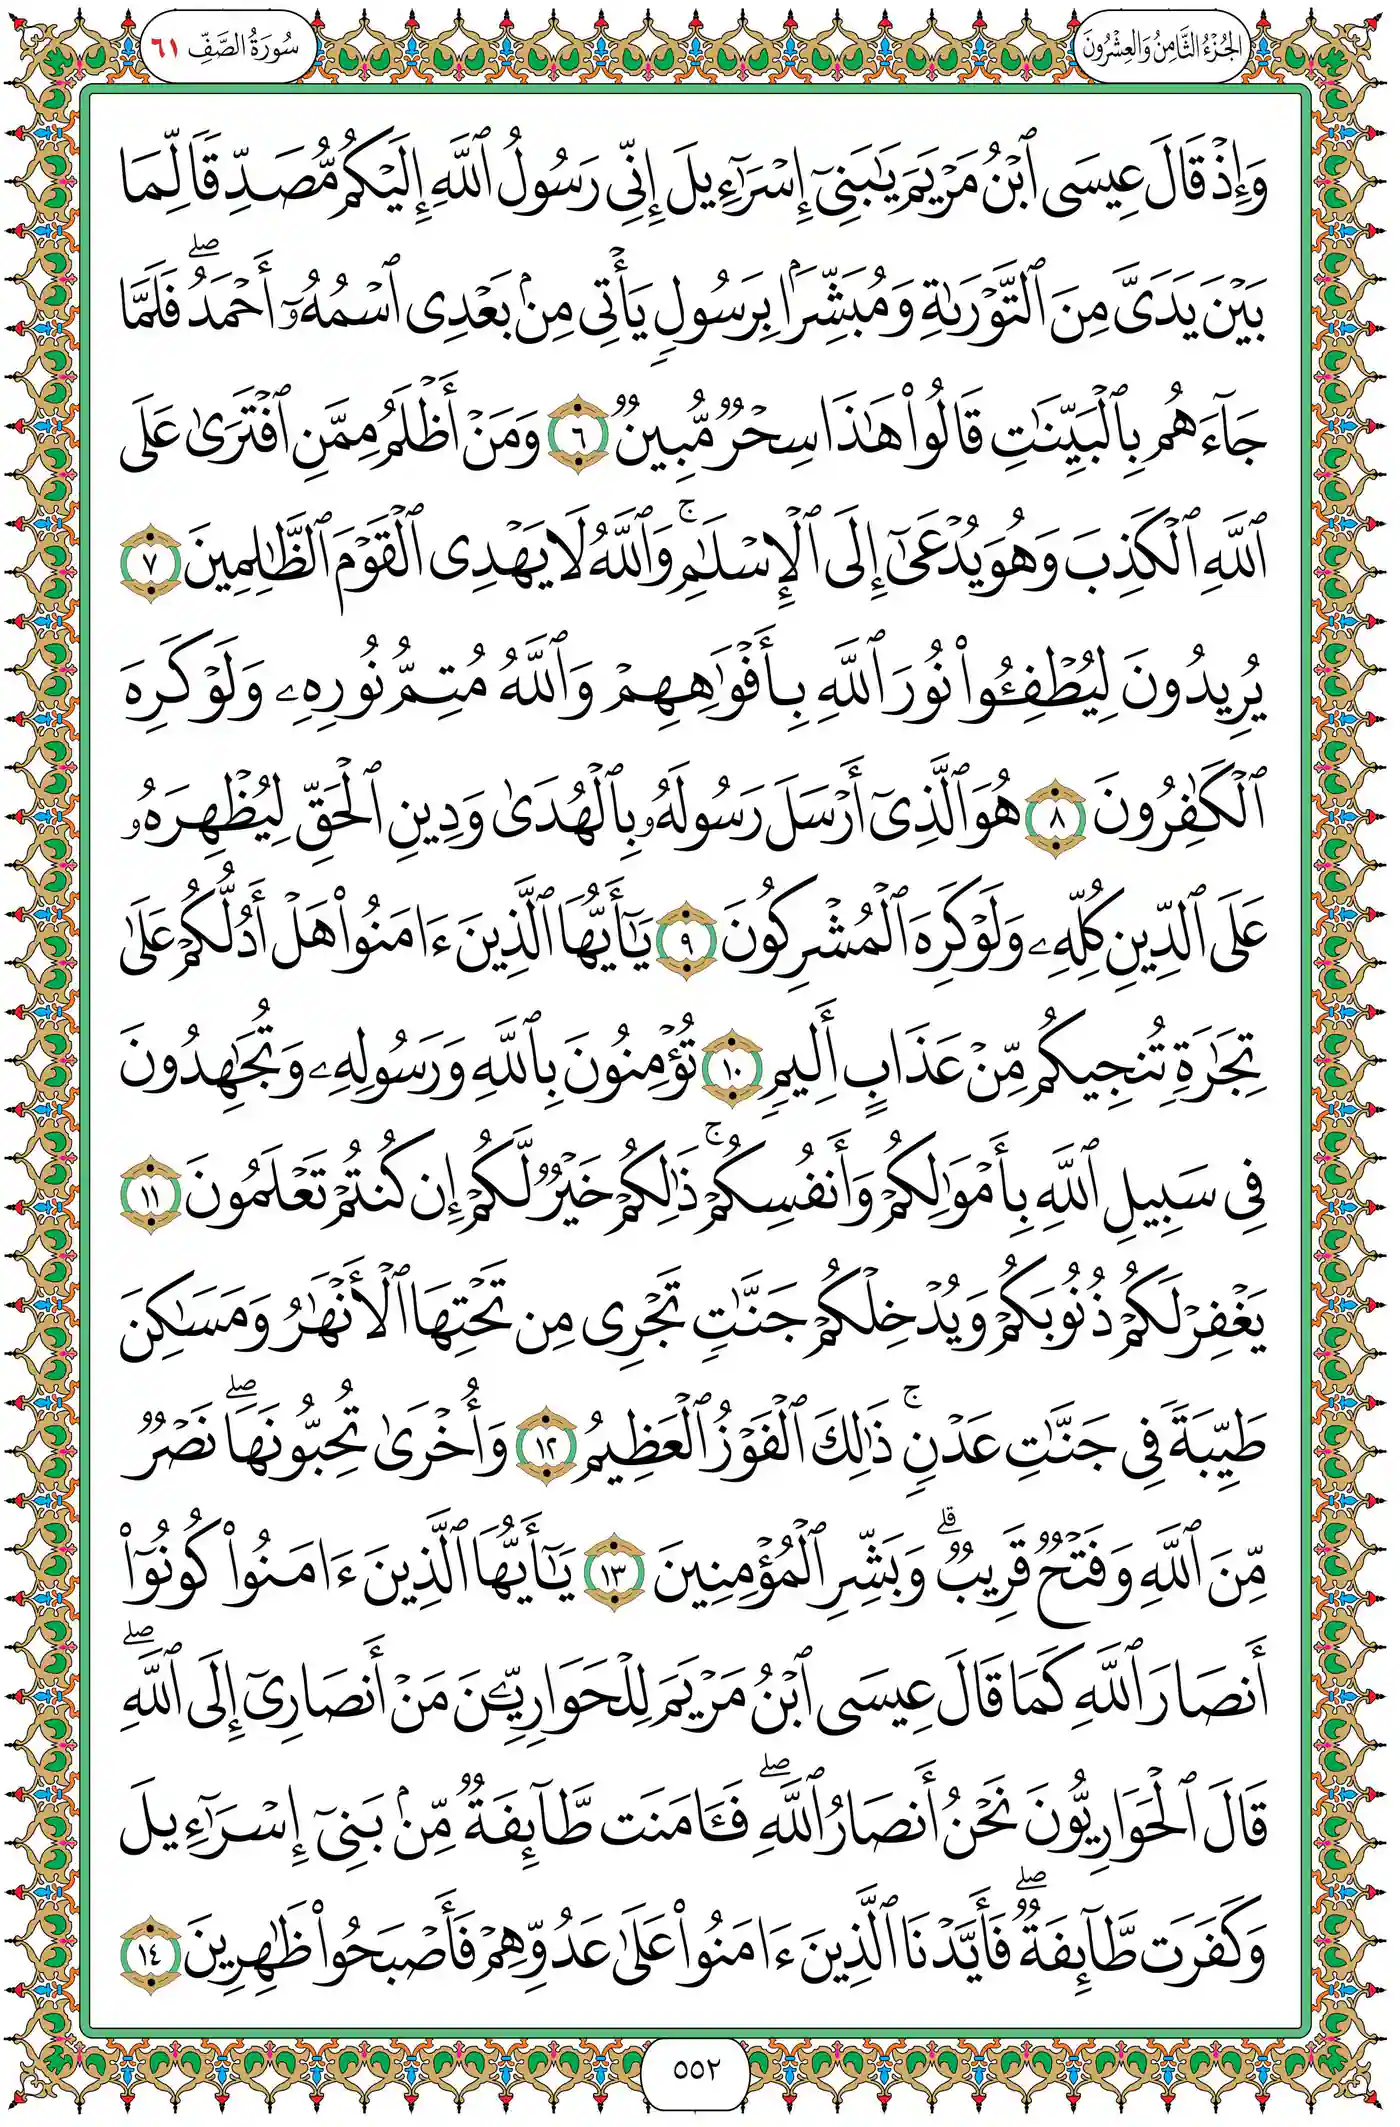 الجُزْءُ الثَّامِنُ وَالعِشْرُونَ
سُورَةُ الصَّفِّ ٦١
وَإِذْ قَالَ عِيسَى ٱبْنُ مَرْيَمَ يَٰبَنِىٓ إِسْرَٰٓءِيلَ إِنِّى رَسُولُ ٱللَّهِ إِلَيْكُم مُّصَدِّقًا لِّمَا
بَيْنَ يَدَىَّ مِنَ ٱلتَّوْرَىٰةِ وَمُبَشِّرًۢا بِرَسُولٍ يَأْتِى مِنۢ بَعْدِى ٱسْمُهُۥٓ أَحْمَدُ ۖ فَلَمَّا
جَآءَهُم بِٱلْبَيِّنَٰتِ قَالُوا۟ هَٰذَا سِحْرٌ مُّبِينٌ ٦ وَمَنْ أَظْلَمُ مِمَّنِ ٱفْتَرَىٰ عَلَى
ٱللَّهِ ٱلْكَذِبَ وَهُوَ يُدْعَىٰٓ إِلَى ٱلْإِسْلَٰمِ ۚ وَٱللَّهُ لَا يَهْدِى ٱلْقَوْمَ ٱلظَّٰلِمِينَ ٧
يُرِيدُونَ لِيُطْفِـُٔوا۟ نُورَ ٱللَّهِ بِأَفْوَٰهِهِمْ وَٱللَّهُ مُتِمُّ نُورِهِۦ وَلَوْ كَرِهَ
ٱلْكَٰفِرُونَ ٨ هُوَ ٱلَّذِىٓ أَرْسَلَ رَسُولَهُۥ بِٱلْهُدَىٰ وَدِينِ ٱلْحَقِّ لِيُظْهِرَهُۥ
عَلَى ٱلدِّينِ كُلِّهِۦ وَلَوْ كَرِهَ ٱلْمُشْرِكُونَ ٩ يَٰٓأَيُّهَا ٱلَّذِينَ ءَامَنُوا۟ هَلْ أَدُلُّكُمْ عَلَىٰ
تِجَٰرَةٍ تُنجِيكُم مِّنْ عَذَابٍ أَلِيمٍ ١٠ تُؤْمِنُونَ بِٱللَّهِ وَرَسُولِهِۦ وَتُجَٰهِدُونَ
فِى سَبِيلِ ٱللَّهِ بِأَمْوَٰلِكُمْ وَأَنفُسِكُمْ ۚ ذَٰلِكُمْ خَيْرٌ لَّكُمْ إِن كُنتُمْ تَعْلَمُونَ ١١
يَغْفِرْ لَكُمْ ذُنُوبَكُمْ وَيُدْخِلْكُمْ جَنَّٰتٍ تَجْرِى مِن تَحْتِهَا ٱلْأَنْهَٰرُ وَمَسَٰكِنَ
طَيِّبَةً فِى جَنَّٰتِ عَدْنٍ ۚ ذَٰلِكَ ٱلْفَوْزُ ٱلْعَظِيمُ ١٢ وَأُخْرَىٰ تُحِبُّونَهَا ۖ نَصْرٌ
مِّنَ ٱللَّهِ وَفَتْحٌ قَرِيبٌ ۗ وَبَشِّرِ ٱلْمُؤْمِنِينَ ١٣ يَٰٓأَيُّهَا ٱلَّذِينَ ءَامَنُوا۟ كُونُوٓا۟
أَنصَارَ ٱللَّهِ كَمَا قَالَ عِيسَى ٱبْنُ مَرْيَمَ لِلْحَوَارِيِّـۧنَ مَنْ أَنصَارِىٓ إِلَى ٱللَّهِ ۖ
قَالَ ٱلْحَوَارِيُّونَ نَحْنُ أَنصَارُ ٱللَّهِ ۖ فَـَٔامَنَت طَّآئِفَةٌ مِّنۢ بَنِىٓ إِسْرَٰٓءِيلَ
وَكَفَرَت طَّآئِفَةٌ ۖ فَأَيَّدْنَا ٱلَّذِينَ ءَامَنُوا۟ عَلَىٰ عَدُوِّهِمْ فَأَصْبَحُوا۟ ظَٰهِرِينَ ١٤
٥٥٢